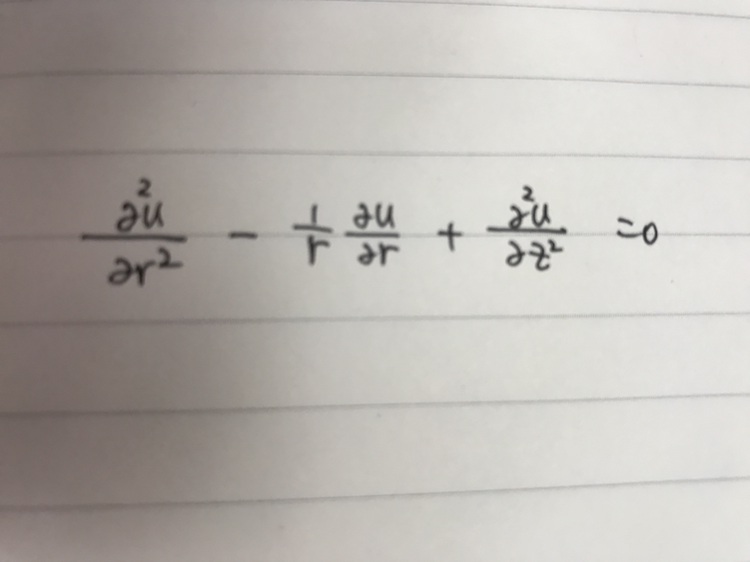 ∂²u/∂r² - 1/r ∂u/∂r + ∂²u/∂z² = 0